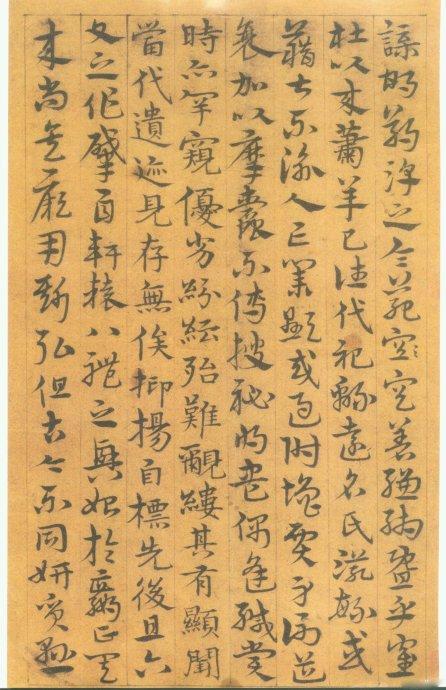 諜邯鄲淳之令範空著縑緗暨乎崔
杜以來蕭羊已往代祀綿遠名氏滋繁或
藉甚不渝人亡業顯或憑附增價身謝道
衰加以糜蠹不傳搜秘將盡偶逢緘賞
時亦罕窺優劣紛紜殆難覼縷其有顯聞
當代遺迹見存無俟抑揚自標先後且六
文之作肇自軒轅八體之興始於嬴正其
來尚矣厥用斯弘但古今不同妍質懸